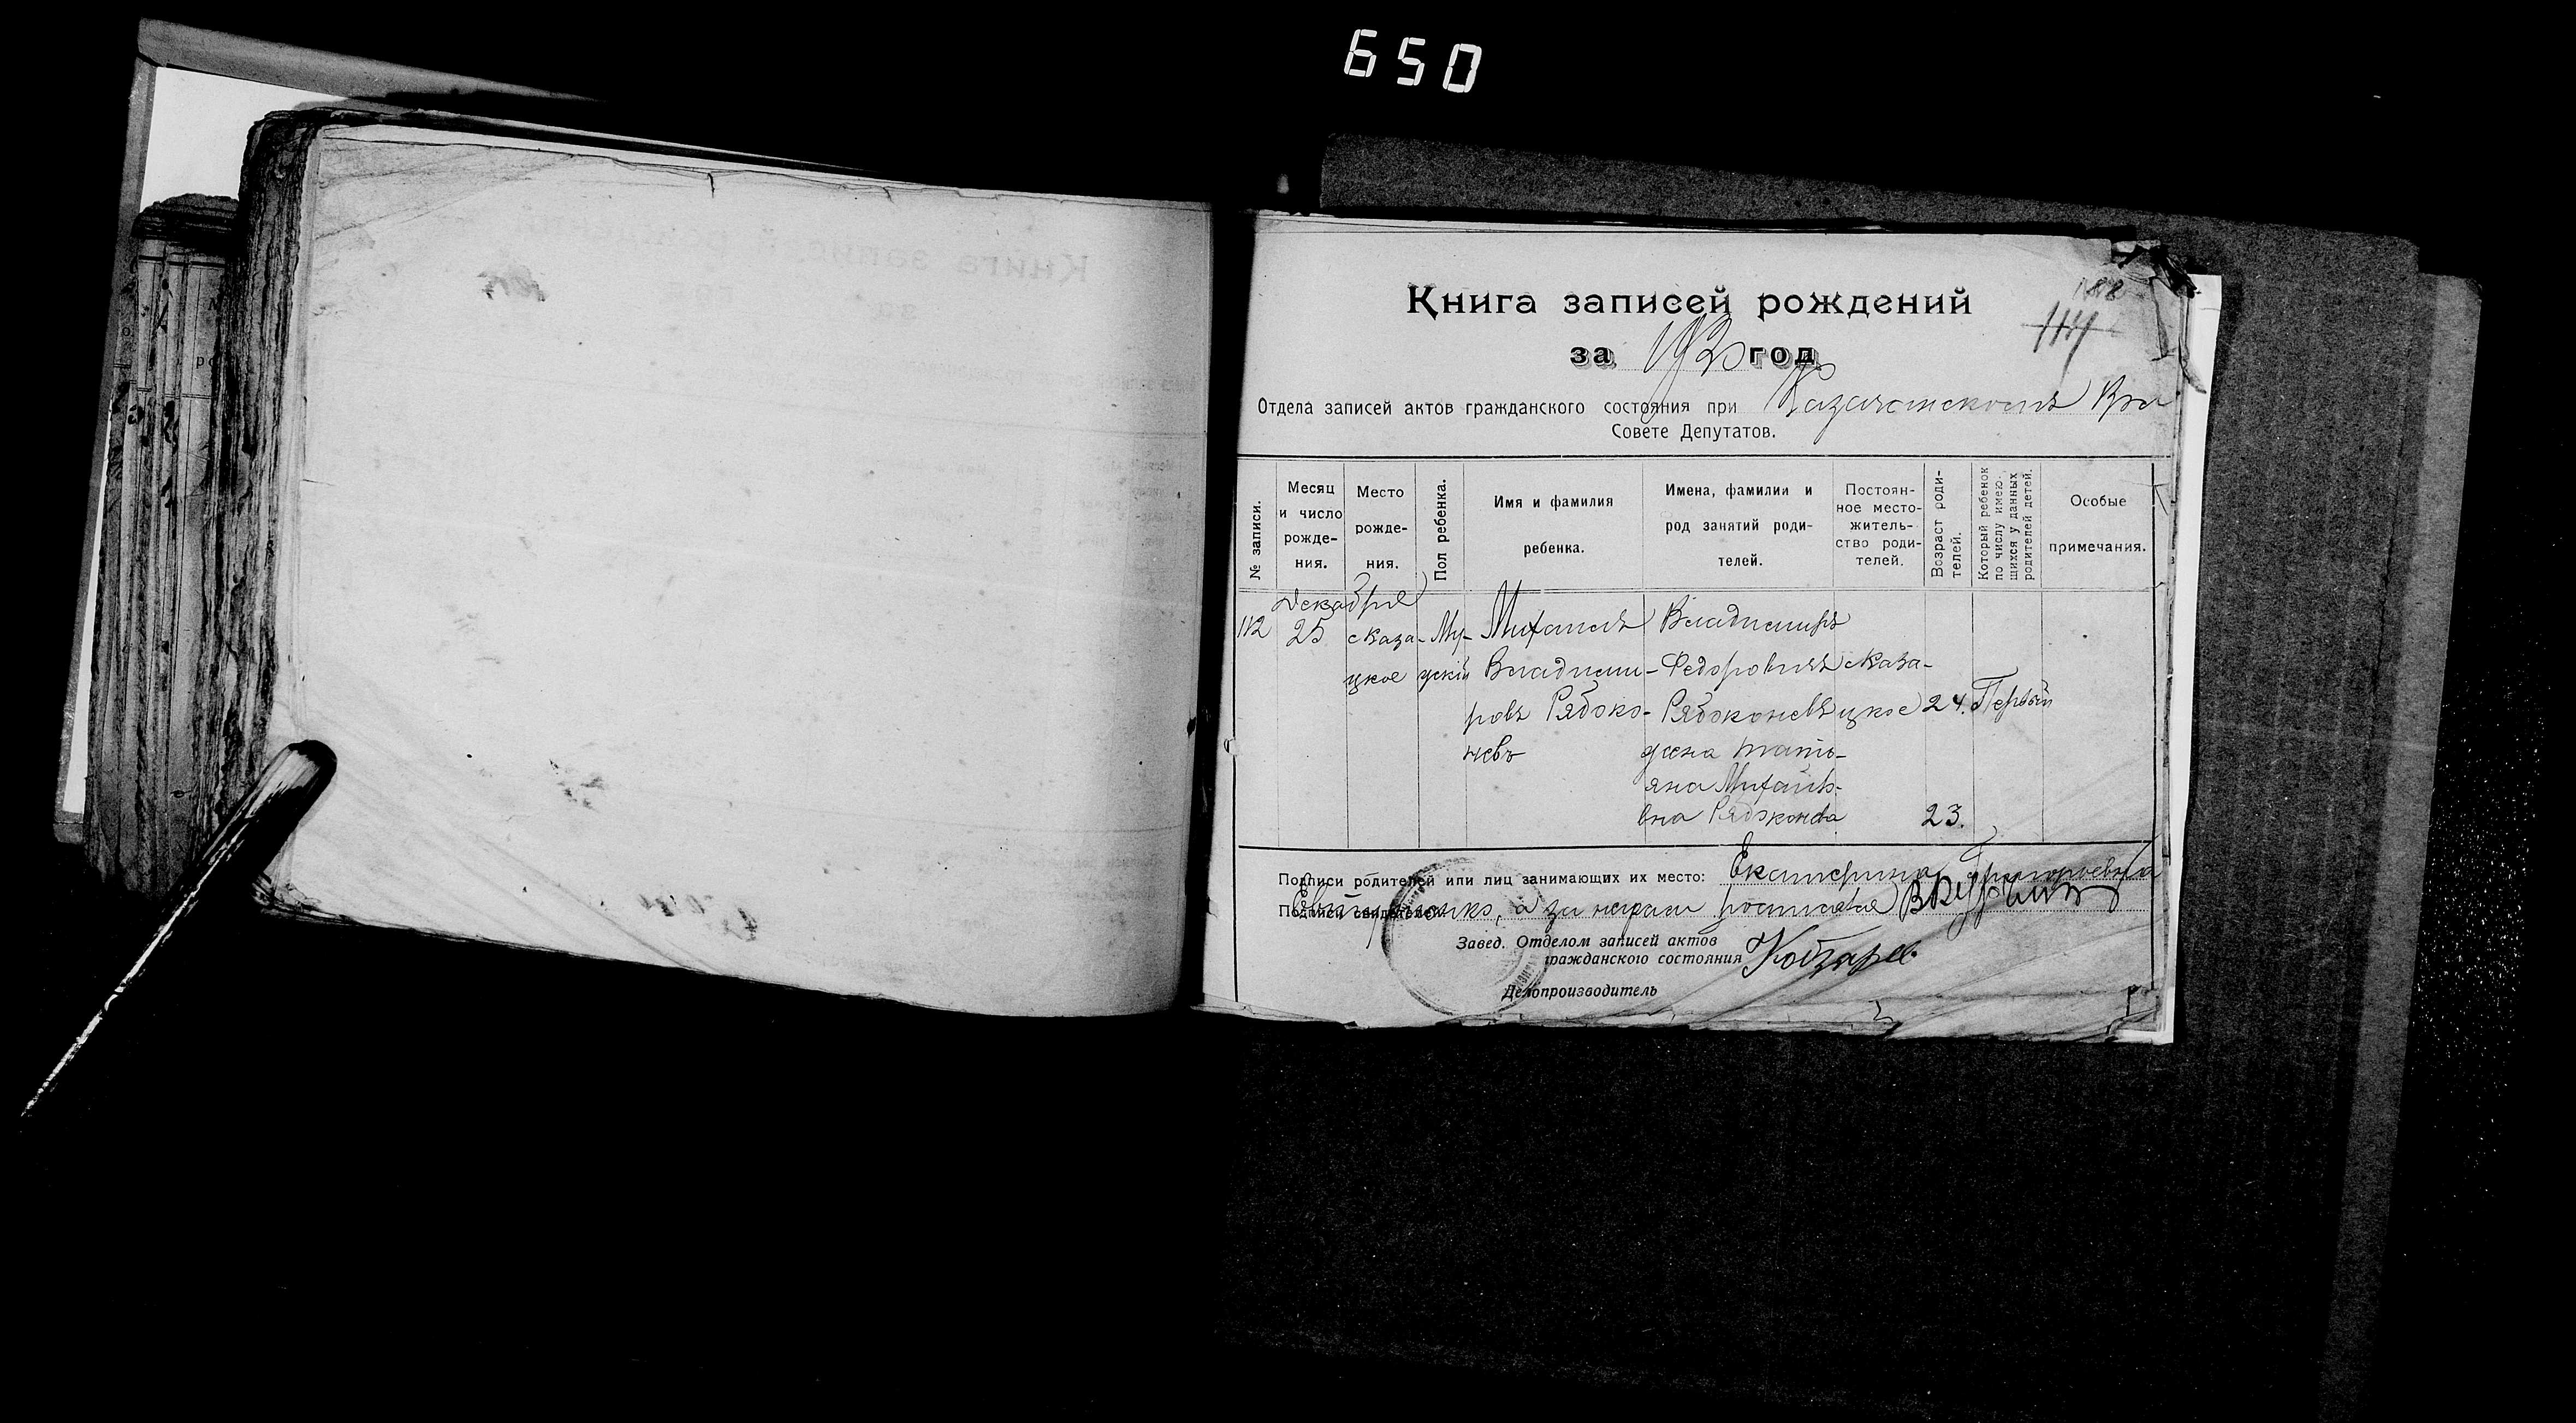 650
188
114
Книга записей рождений
за 1920 год
Отдела записей актов гражданского состояния при Казачатскомъ Вол
Совете Депутатов.
№ записи.
Месяц и число рожде-ния.
Место рожде-ния.
Пол ребенка.
Имя и фамилия ребенка.
Имена, фамилии и род занятий роди-телей.
Постоян-ное место-житель-ство роди-телей.
Возраст роди-телей.
Который ребенок по числу имею-щихся у данных родителей детей.
Особые примечания.
Декабря
112 25 с Каза- Му- Михаилъ Владимиръ
цкое жскій Владими- Федоровичъ с Каза-
ровъ Рябоко- Рябоконевъ цкое 24. Первый
невъ жена Тать-
яна Михайло-
вна Рябоконева 23.
Подписи родителей или лиц занимающих их место: Екатерина Григорьевна
Подписи свидетелей: а за неграм росписался
Завед. Отделом записей актов
гражданского состояния
Делопроизводитель